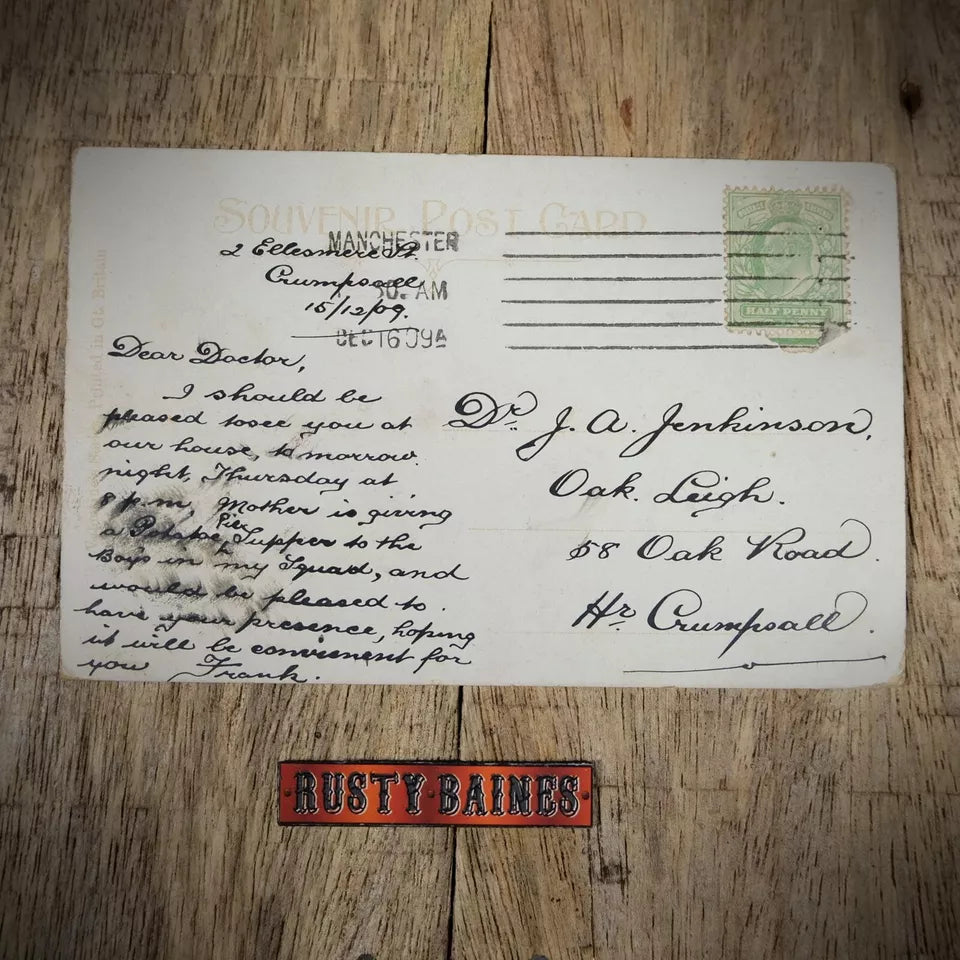 SOUVENIR POST CARD
MANCHESTER
2 Ellesmere St.
Crumpsall
30. AM
15/12/09.
DEC 16 09
Printed in Gt. Britain
HALF PENNY
Dear Doctor,
I should be
pleased to see you at
our house, tomorrow.
night, Thursday at
8 p.m. Mother is giving
a Potatoe Pie Supper to the
Boys in my Squad, and
would be pleased to.
have your presence, hoping
it will be convienent for
you Frank.
Dr. J. A. Jenkinson,
Oak. Leigh.
58 Oak Road.
Hr. Crumpsall.
RUSTY BAINES